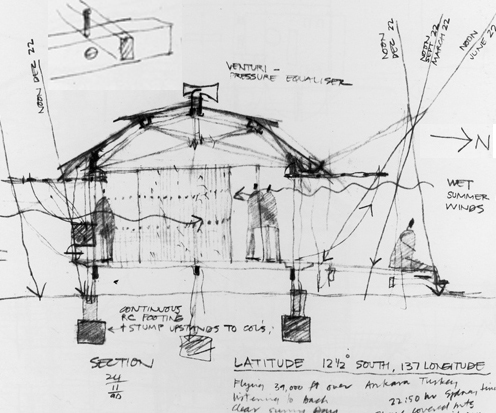 NOON DEC 22
NOON DEC 22
NOON
SEPT 22
MARCH 22
NOON
JUNE 22
VENTURI -
PRESSURE EQUALISER
N
WET
SUMMER
WINDS
CONTINUOUS
RC FOOTING
+ STUMP UPSTANDS TO COL'S.
SECTION
24
11
LATITUDE 12½° SOUTH, 137 LONGITUDE
Flying 39,000 ft over Ankara Turkey
listening to bach 22.150 hr Sydney time
clear sunny covered